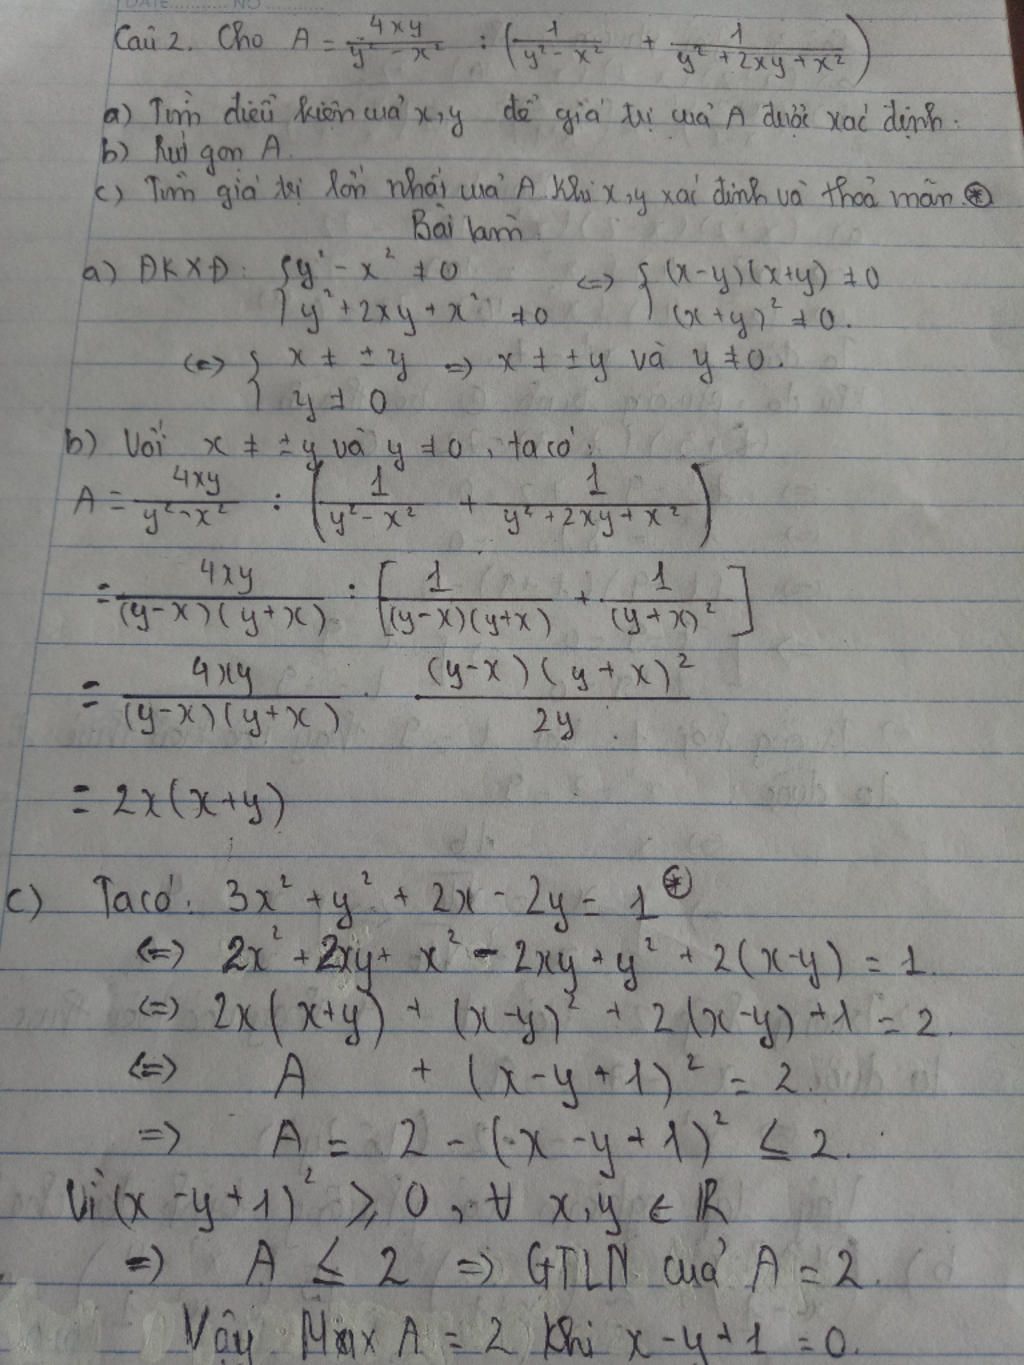 DATE NO
Câu 2. Cho A = 4xy/(y² - x²) : (1/(y² - x²) + 1/(y² + 2xy + x²))
a) Tìm điều kiện của x, y để giá trị của A được xác định.
b) Rút gọn A.
c) Tìm giá trị lớn nhất của A khi x, y xác định và thoả mãn ⊛
Bài làm.
a) ĐKXĐ: { y² - x² ≠ 0 ; y² + 2xy + x² ≠ 0 <=> { (x-y)(x+y) ≠ 0 ; (x+y)² ≠ 0.
<=> { x ≠ ±y ; y ≠ 0 => x ≠ ±y và y ≠ 0.
b) Với x ≠ ±y và y ≠ 0, ta có:
A = 4xy/(y² - x²) : (1/(y² - x²) + 1/(y² + 2xy + x²))
= 4xy/((y-x)(y+x)) : [1/((y-x)(y+x)) + 1/(y+x)²]
= 4xy/((y-x)(y+x)) . (y-x)(y+x)²/2y
= 2x(x+y)
c) Ta có: 3x² + y² + 2x - 2y = 1 ⊛
<=> 2x² + 2xy + x² - 2xy + y² + 2(x-y) = 1.
<=> 2x(x+y) + (x-y)² + 2(x-y) + 1 = 2.
<=> A + (x-y+1)² = 2.
=> A = 2 - (x-y+1)² ≤ 2.
Vì (x-y+1)² ≥ 0, ∀ x, y ∈ R
=> A ≤ 2 => GTLN của A = 2.
Vậy Max A = 2 khi x-y+1 = 0.